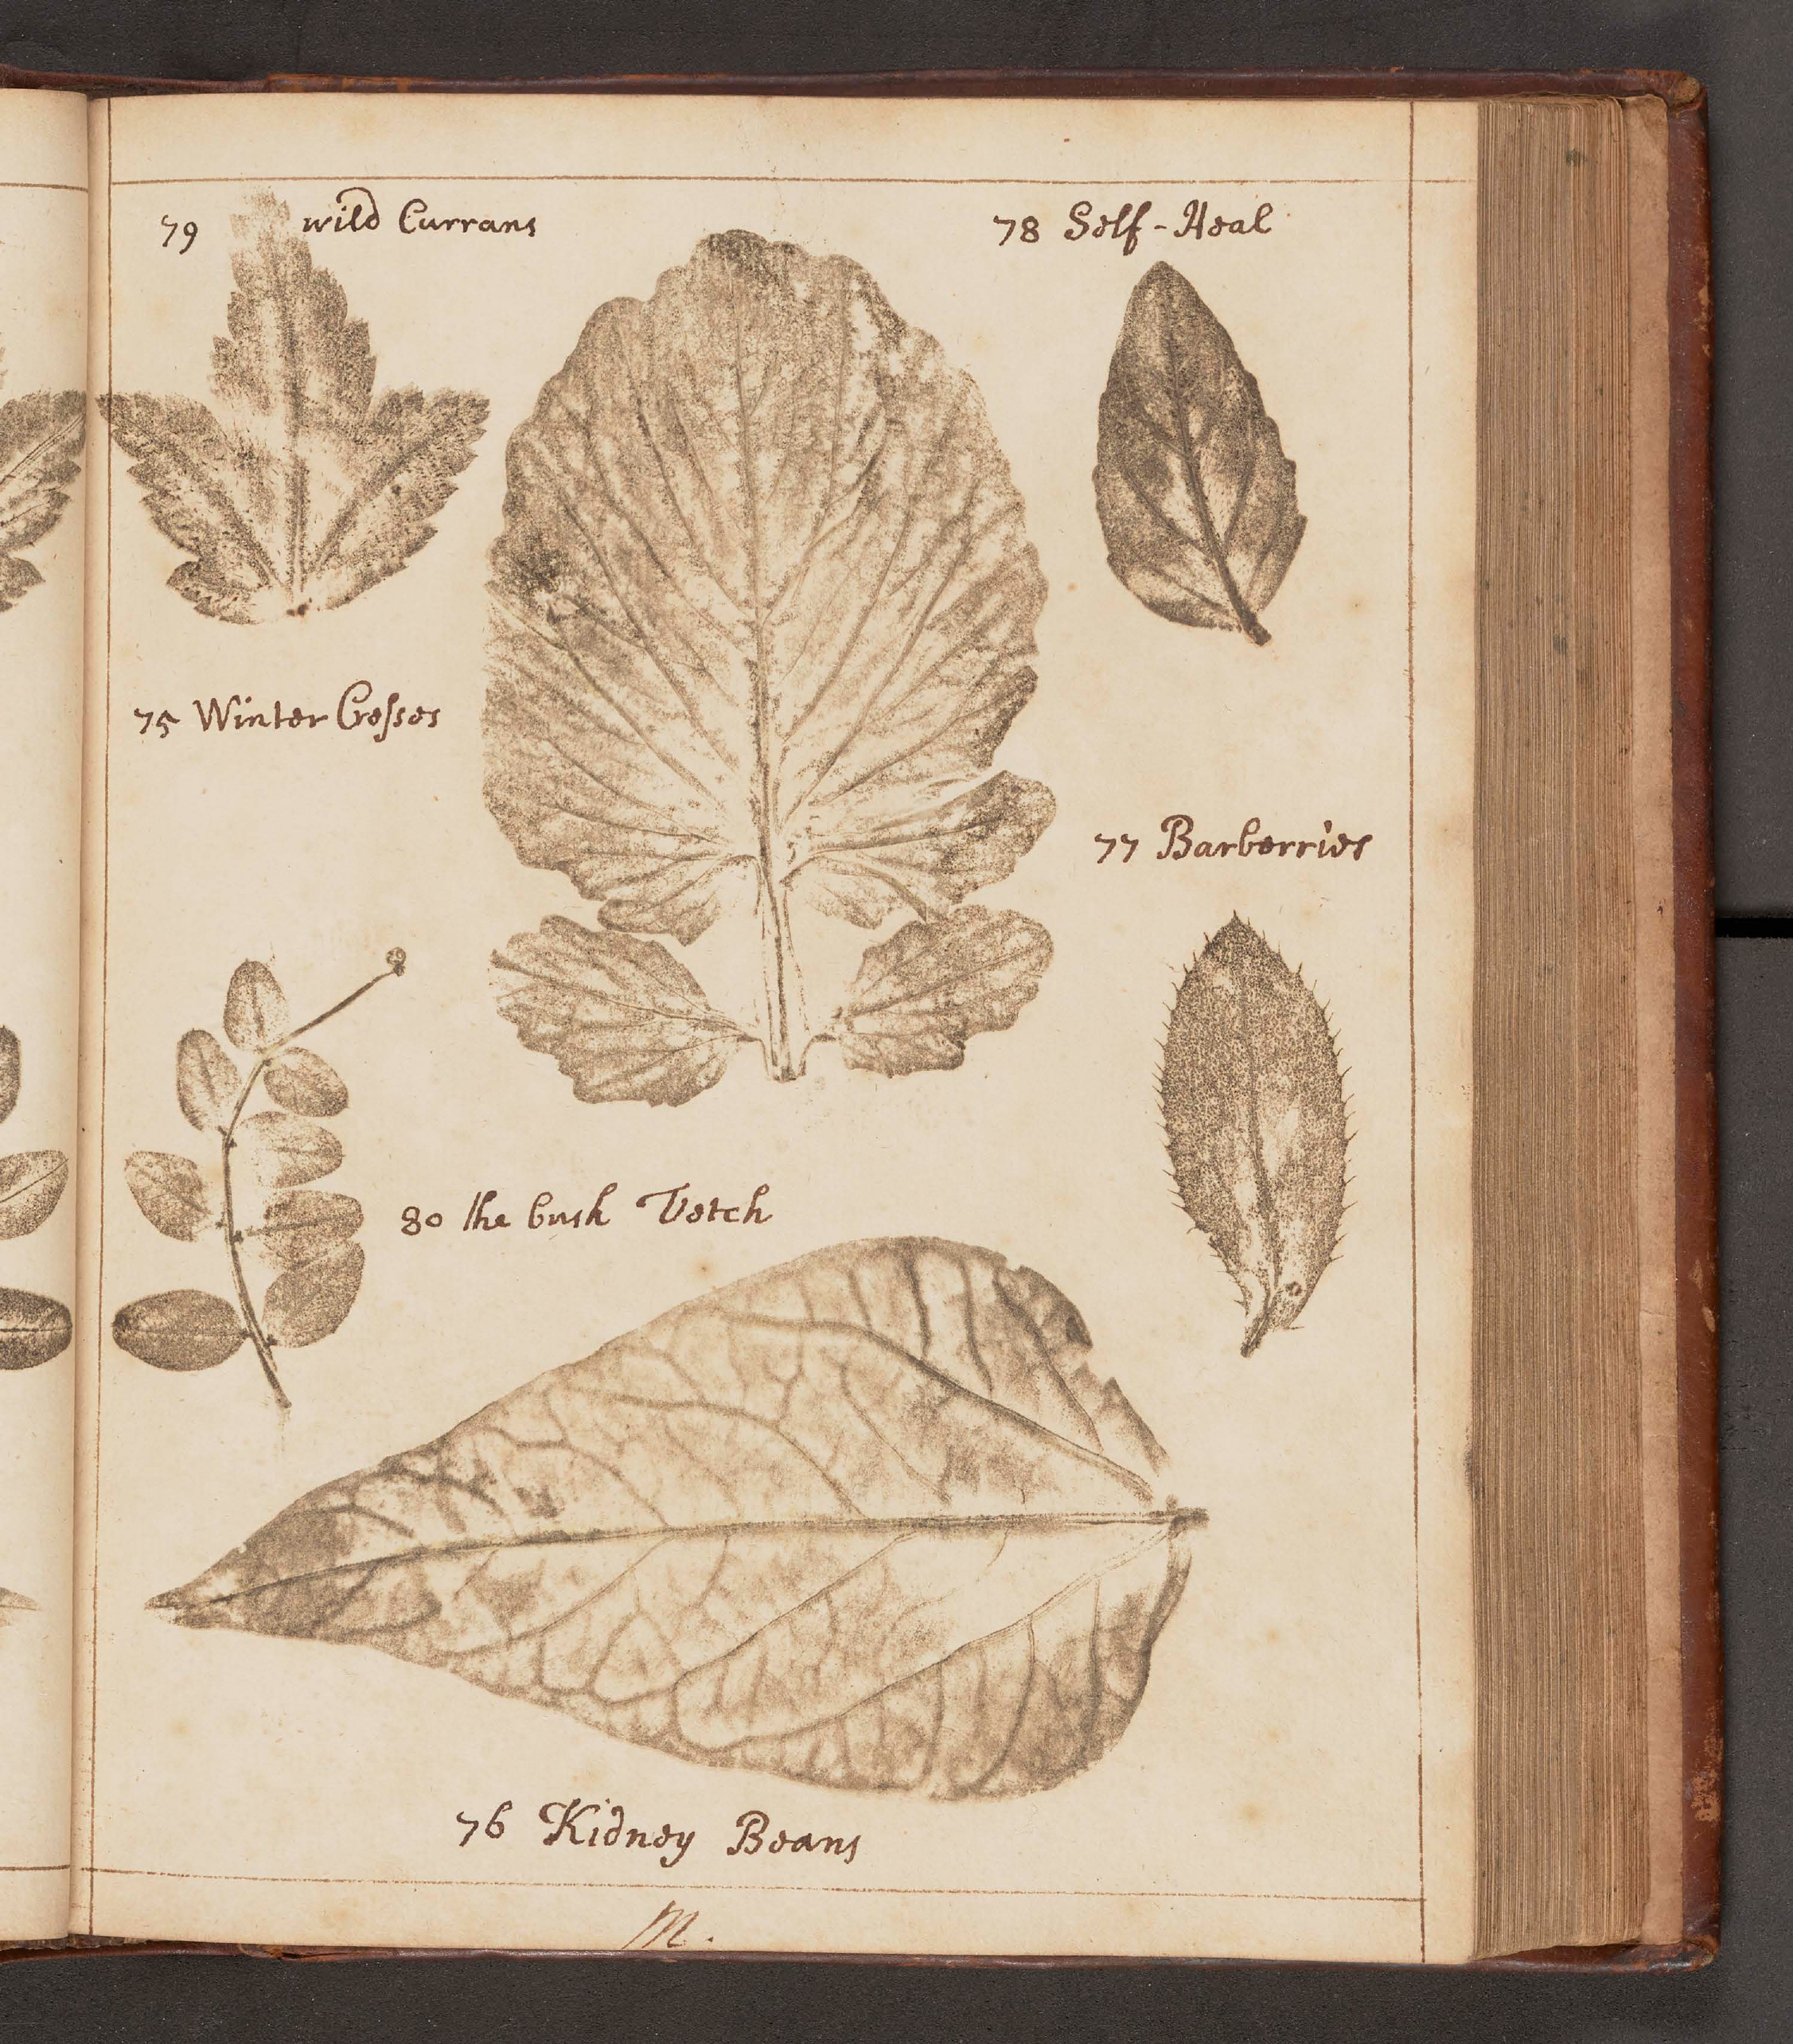 79 wild Currans
78 Self-Heal
75 Winter Cresses
77 Barberries
80 the bush Vetch
76 Kidney Beans
M.